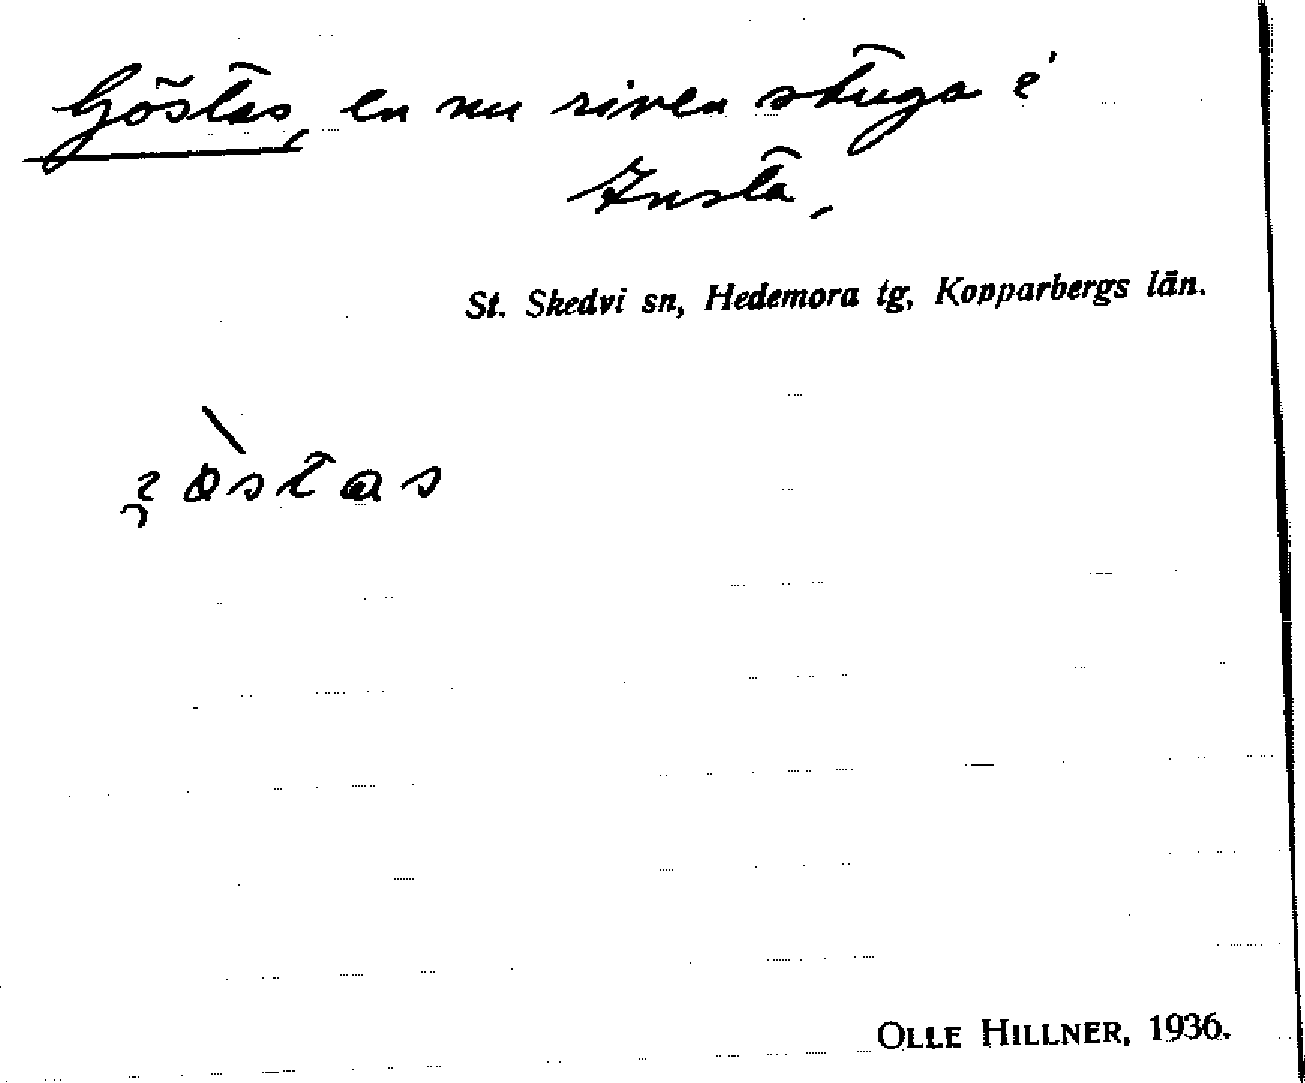 Göstas, en nu riven stuga i
Insta,
St. Skedvi sn, Hedemora tg, Kopparbergs län.
OLLE HILLNER, 1936.